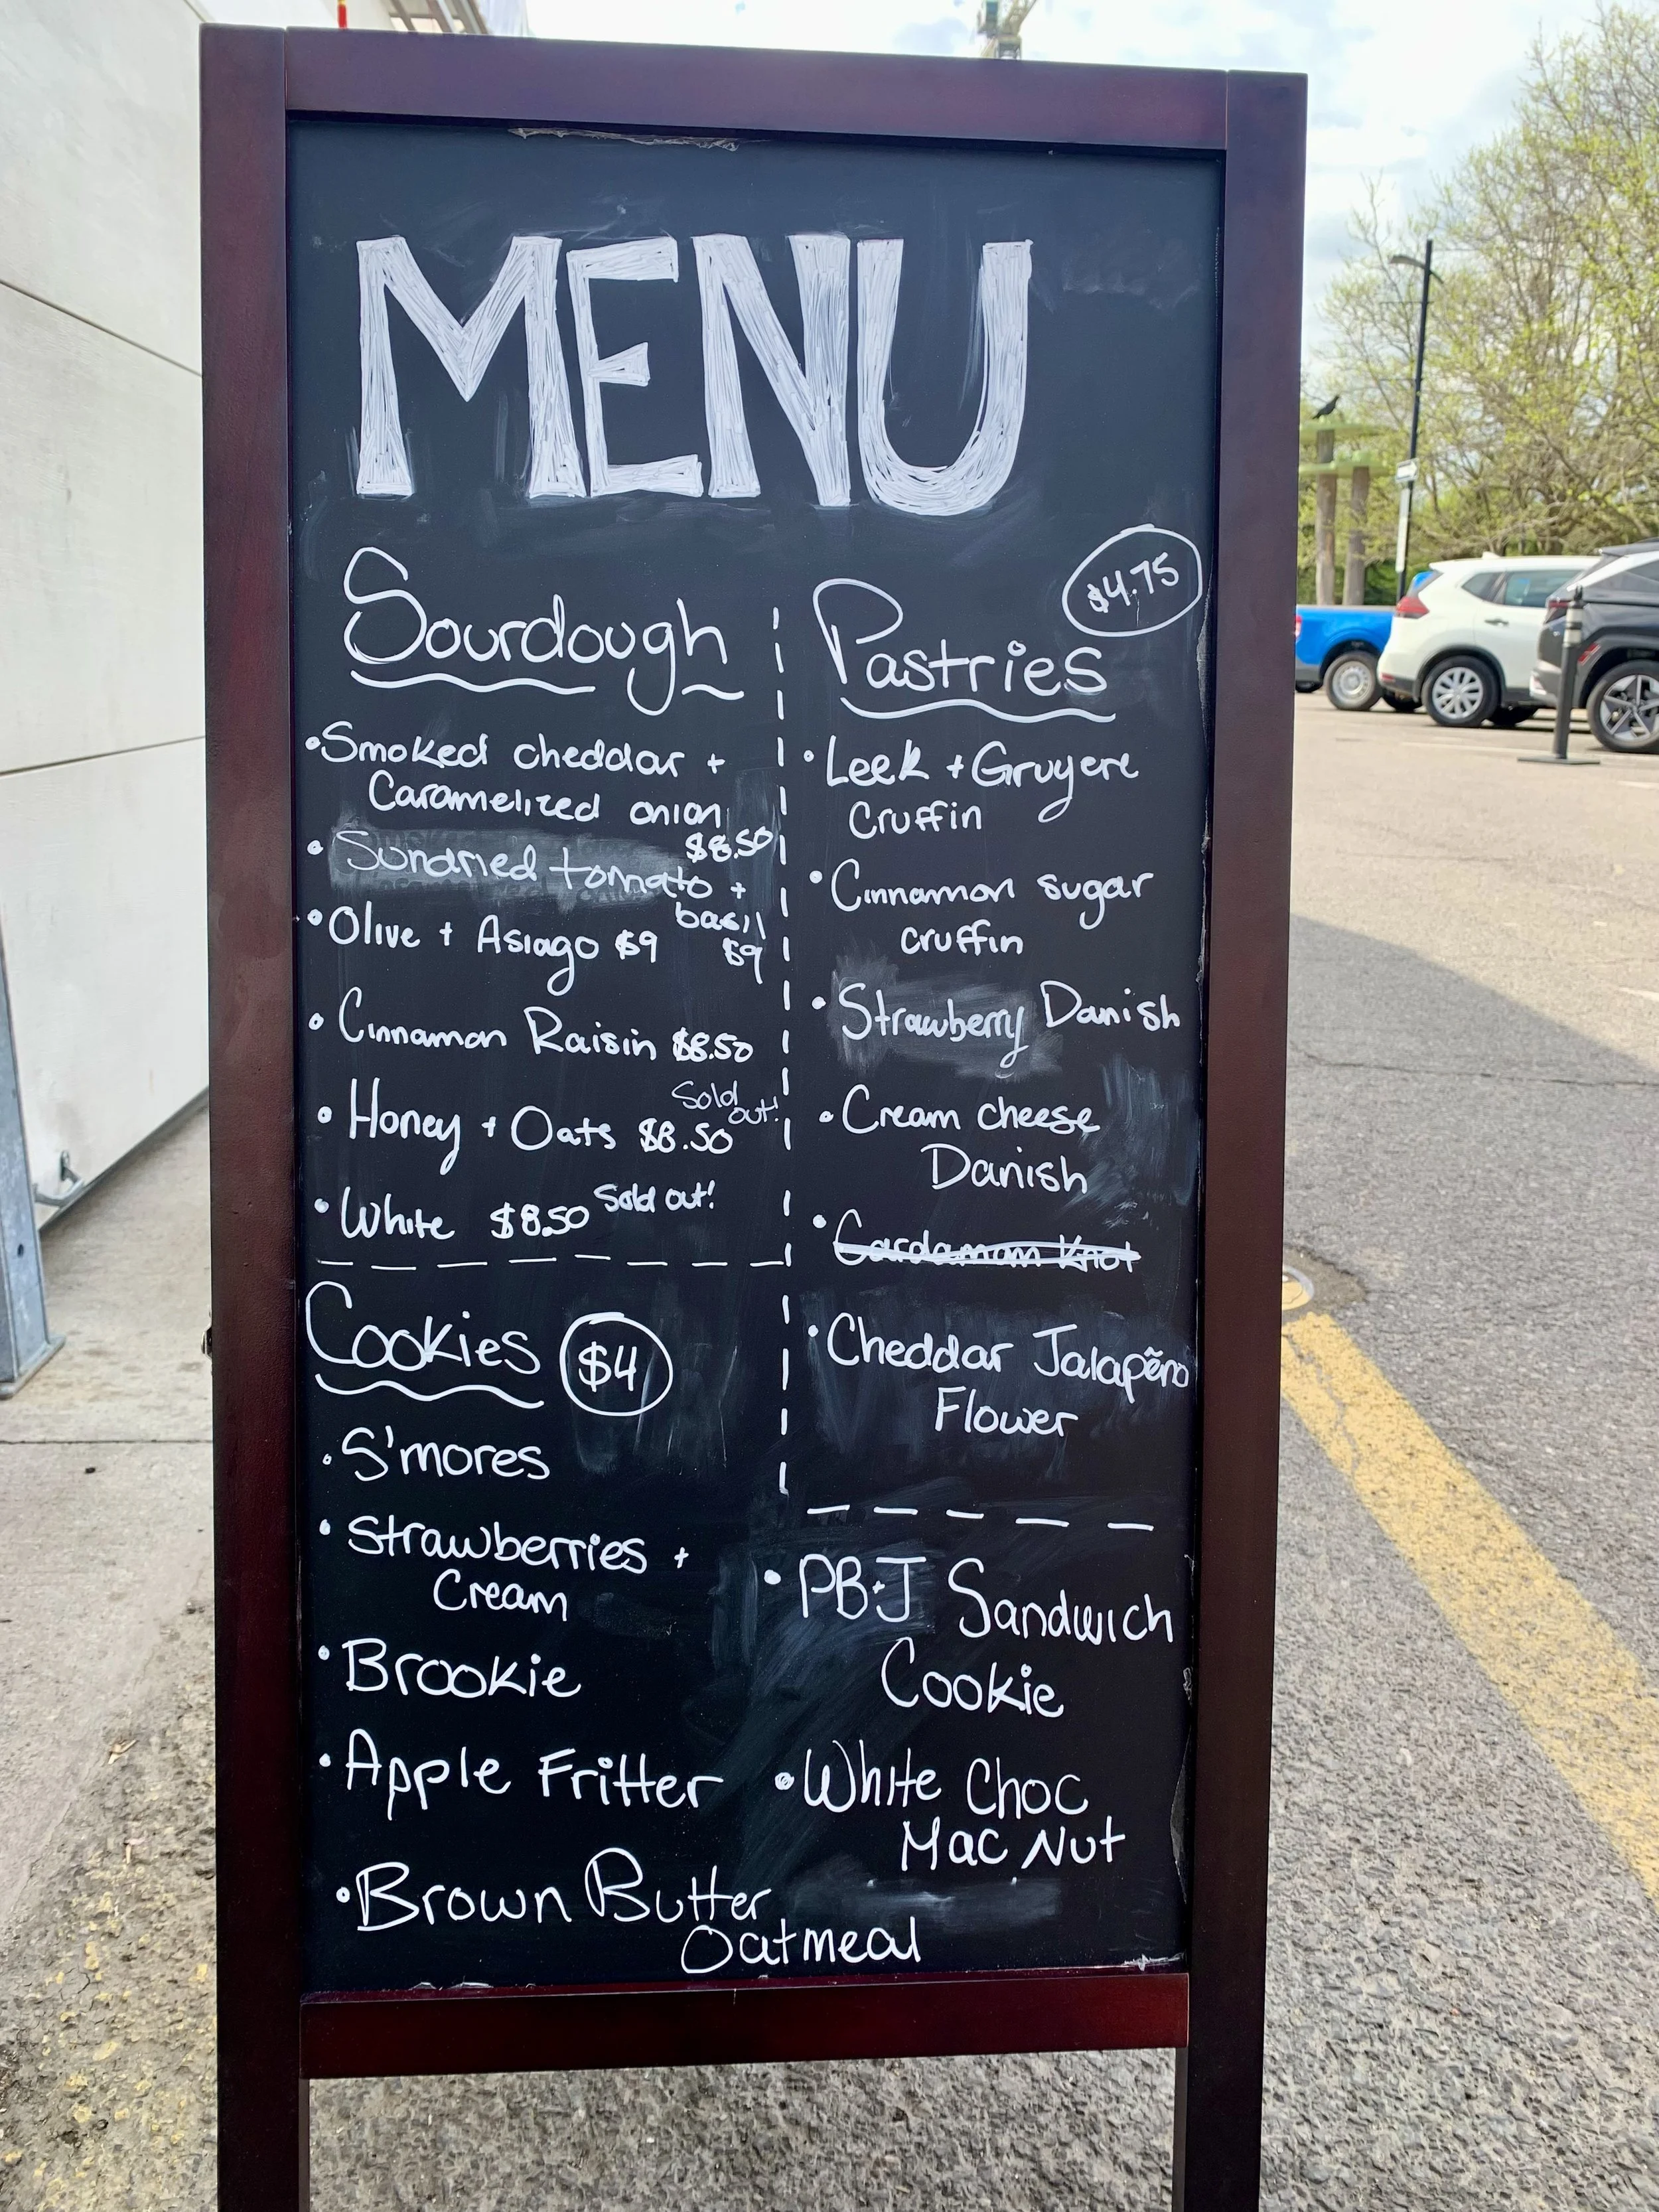 MENU
Sourdough
• Smoked cheddar +
Caramelized onion
$8.50
• Sundried tomato +
basil
$9
• Olive + Asiago $9
• Cinnamon Raisin $8.50
• Honey + Oats $8.50 Sold out!
• White $8.50 Sold out!
Cookies $4
• S'mores
• Strawberries +
Cream
• Brookie
• Apple Fritter
• Brown Butter
Oatmeal
$4.75
Pastries
• Leek + Gruyere
Cruffin
• Cinnamon sugar
cruffin
• Strawberry Danish
• Cream cheese
Danish
• Cardamom Knot
• Cheddar Jalapẽno
Flower
• PB+J Sandwich
Cookie
• White Choc
Mac Nut